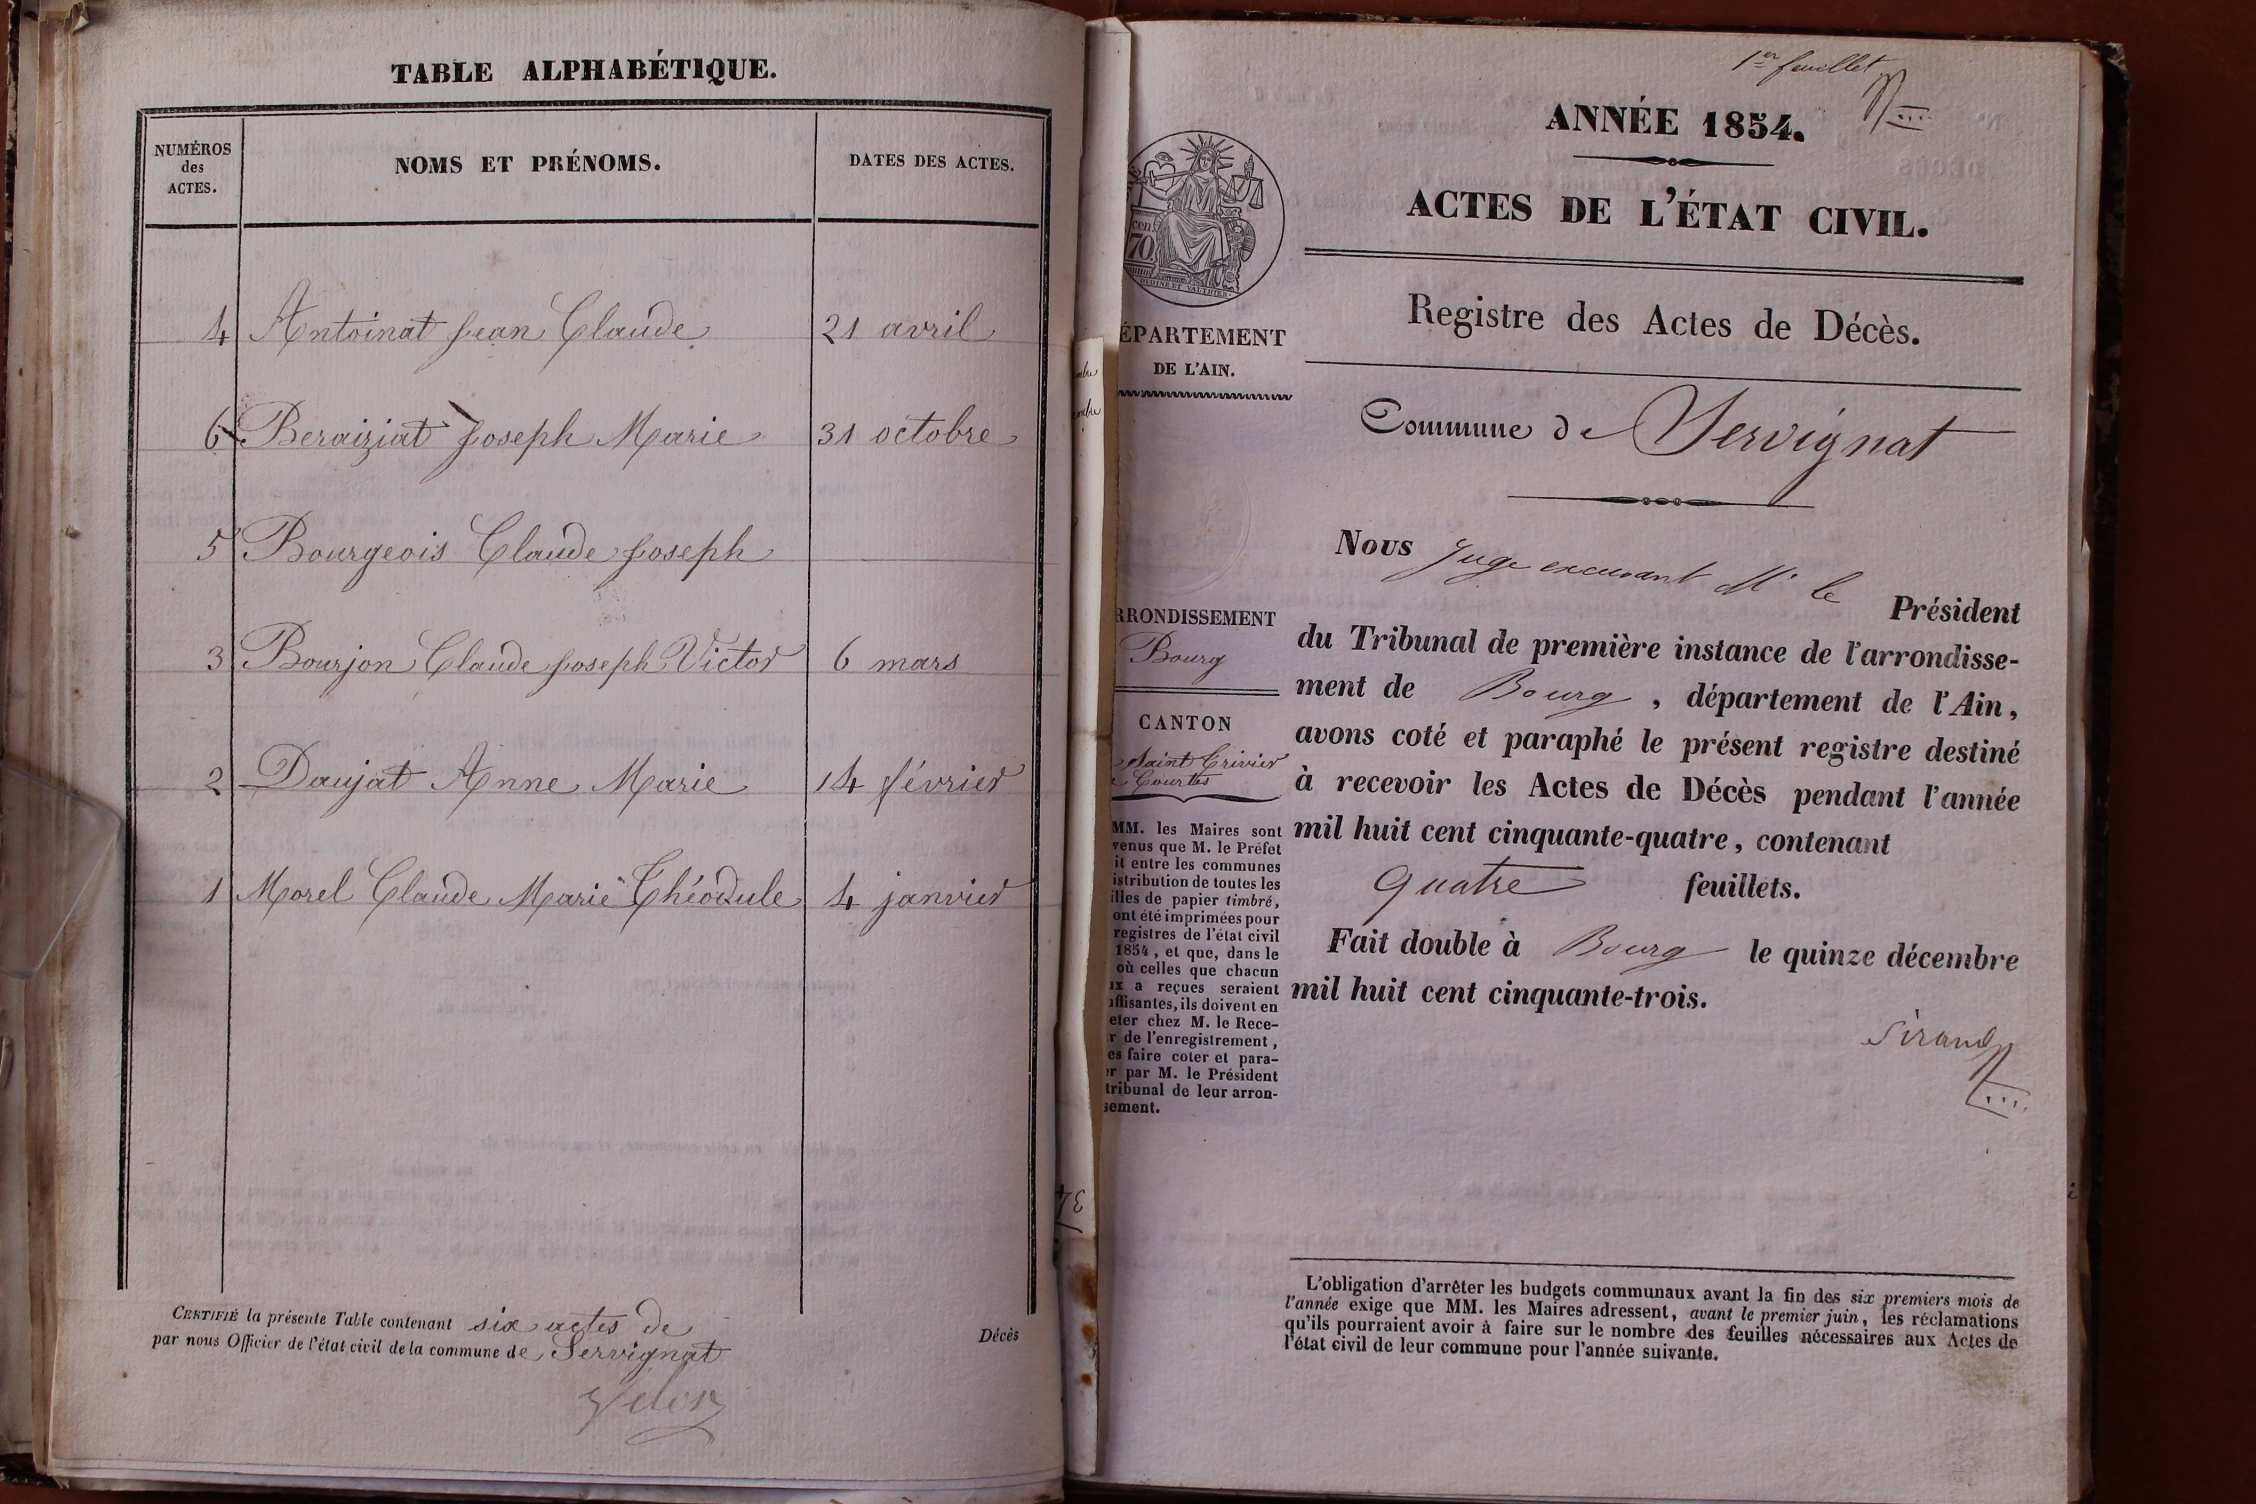 TABLE ALPHABÉTIQUE.
NUMÉROS des ACTES.
NOMS ET PRÉNOMS.
DATES DES ACTES.
4 Antoinat Jean Claude 21 avril
6 Beraiziat Joseph Marie 31 octobre
5 Bourgeois Claude Joseph
3 Bourjon Claude Joseph Victor 6 mars
2 Daujat Anne Marie 14 février
1 Morel Claude Marie Théodule 4 janvier
CERTIFIÉ la présente Table contenant six actes de Décès
par nous Officier de l'état civil de la commune de Servignat
1er feuillet
ANNÉE 1854.
ACTES DE L'ÉTAT CIVIL.
Registre des Actes de Décès.
Commune de Servignat
cen.
70.
ÉPARTEMENT
DE L'AIN.
RRONDISSEMENT
Bourg
CANTON
Saint Trivier
Courtes
MM. les Maires sont
venus que M. le Préfet
it entre les communes
istribution de toutes les
illes de papier timbré,
ont été imprimées pour
registres de l'état civil
1854, et que, dans le
où celles que chacun
ux a reçues seraient
uffisantes, ils doivent en
eter chez M. le Rece-
r de l'enregistrement,
es faire coter et para-
er par M. le Président
tribunal de leur arron-
sement.
Nous Juge excusant Mr le Président
du Tribunal de première instance de l'arrondisse-
ment de Bourg, département de l'Ain,
avons coté et paraphé le présent registre destiné
à recevoir les Actes de Décès pendant l'année
mil huit cent cinquante-quatre, contenant
Quatre feuillets.
Fait double à Bourg le quinze décembre
mil huit cent cinquante-trois.
Sirand
L'obligation d'arrêter les budgets communaux avant la fin des six premiers mois de
l'année exige que MM. les Maires adressent, avant le premier juin, les réclamations
qu'ils pourraient avoir à faire sur le nombre des feuilles nécessaires aux Actes de
l'état civil de leur commune pour l'année suivante.